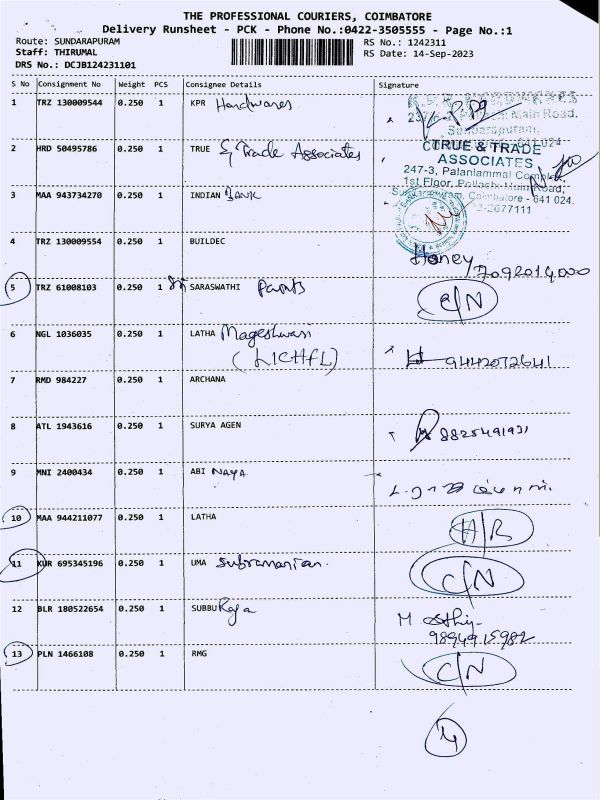 THE PROFESSIONAL COURIERS, COIMBATORE
Delivery Runsheet - PCK - Phone No.:0422-3505555 - Page No.:1
Route: SUNDARAPURAM RS No.: 1242311
Staff: THIRUMAL RS Date: 14-Sep-2023
DRS No.: DCJB124231101
S No Consignment No Weight PCS Consignee Details Signature
1 TRZ 130009544 0.250 1 KPR Hardwares
Main Road,
Sundarapuram,
2 HRD 50495786 0.250 1 TRUE & Trade Associates
TRUE & TRADE
ASSOCIATES
247-3, Palaniammal Complex,
1st Floor, Pollachi Main Road,
Coimbatore - 641 024.
2677111
3 MAA 943734270 0.250 1 INDIAN BANK
4 TRZ 130009554 0.250 1 BUILDEC
Honey
7092014000
5 TRZ 61008103 0.250 1 SARASWATHI Paints C/N
6 NGL 1036035 0.250 1 LATHA Mageshwari
(LICHFL) 9442072641
7 RMD 984227 0.250 1 ARCHANA
8 ATL 1943616 0.250 1 SURYA AGEN 8825491931
9 MNI 2400434 0.250 1 ABI NAYA
10 MAA 944211077 0.250 1 LATHA
11 KUR 695345196 0.250 1 UMA Subramanian. C/N
12 BLR 180522654 0.250 1 SUBBU Raja M
9894915982
13 PLN 1466108 0.250 1 RMG C/N